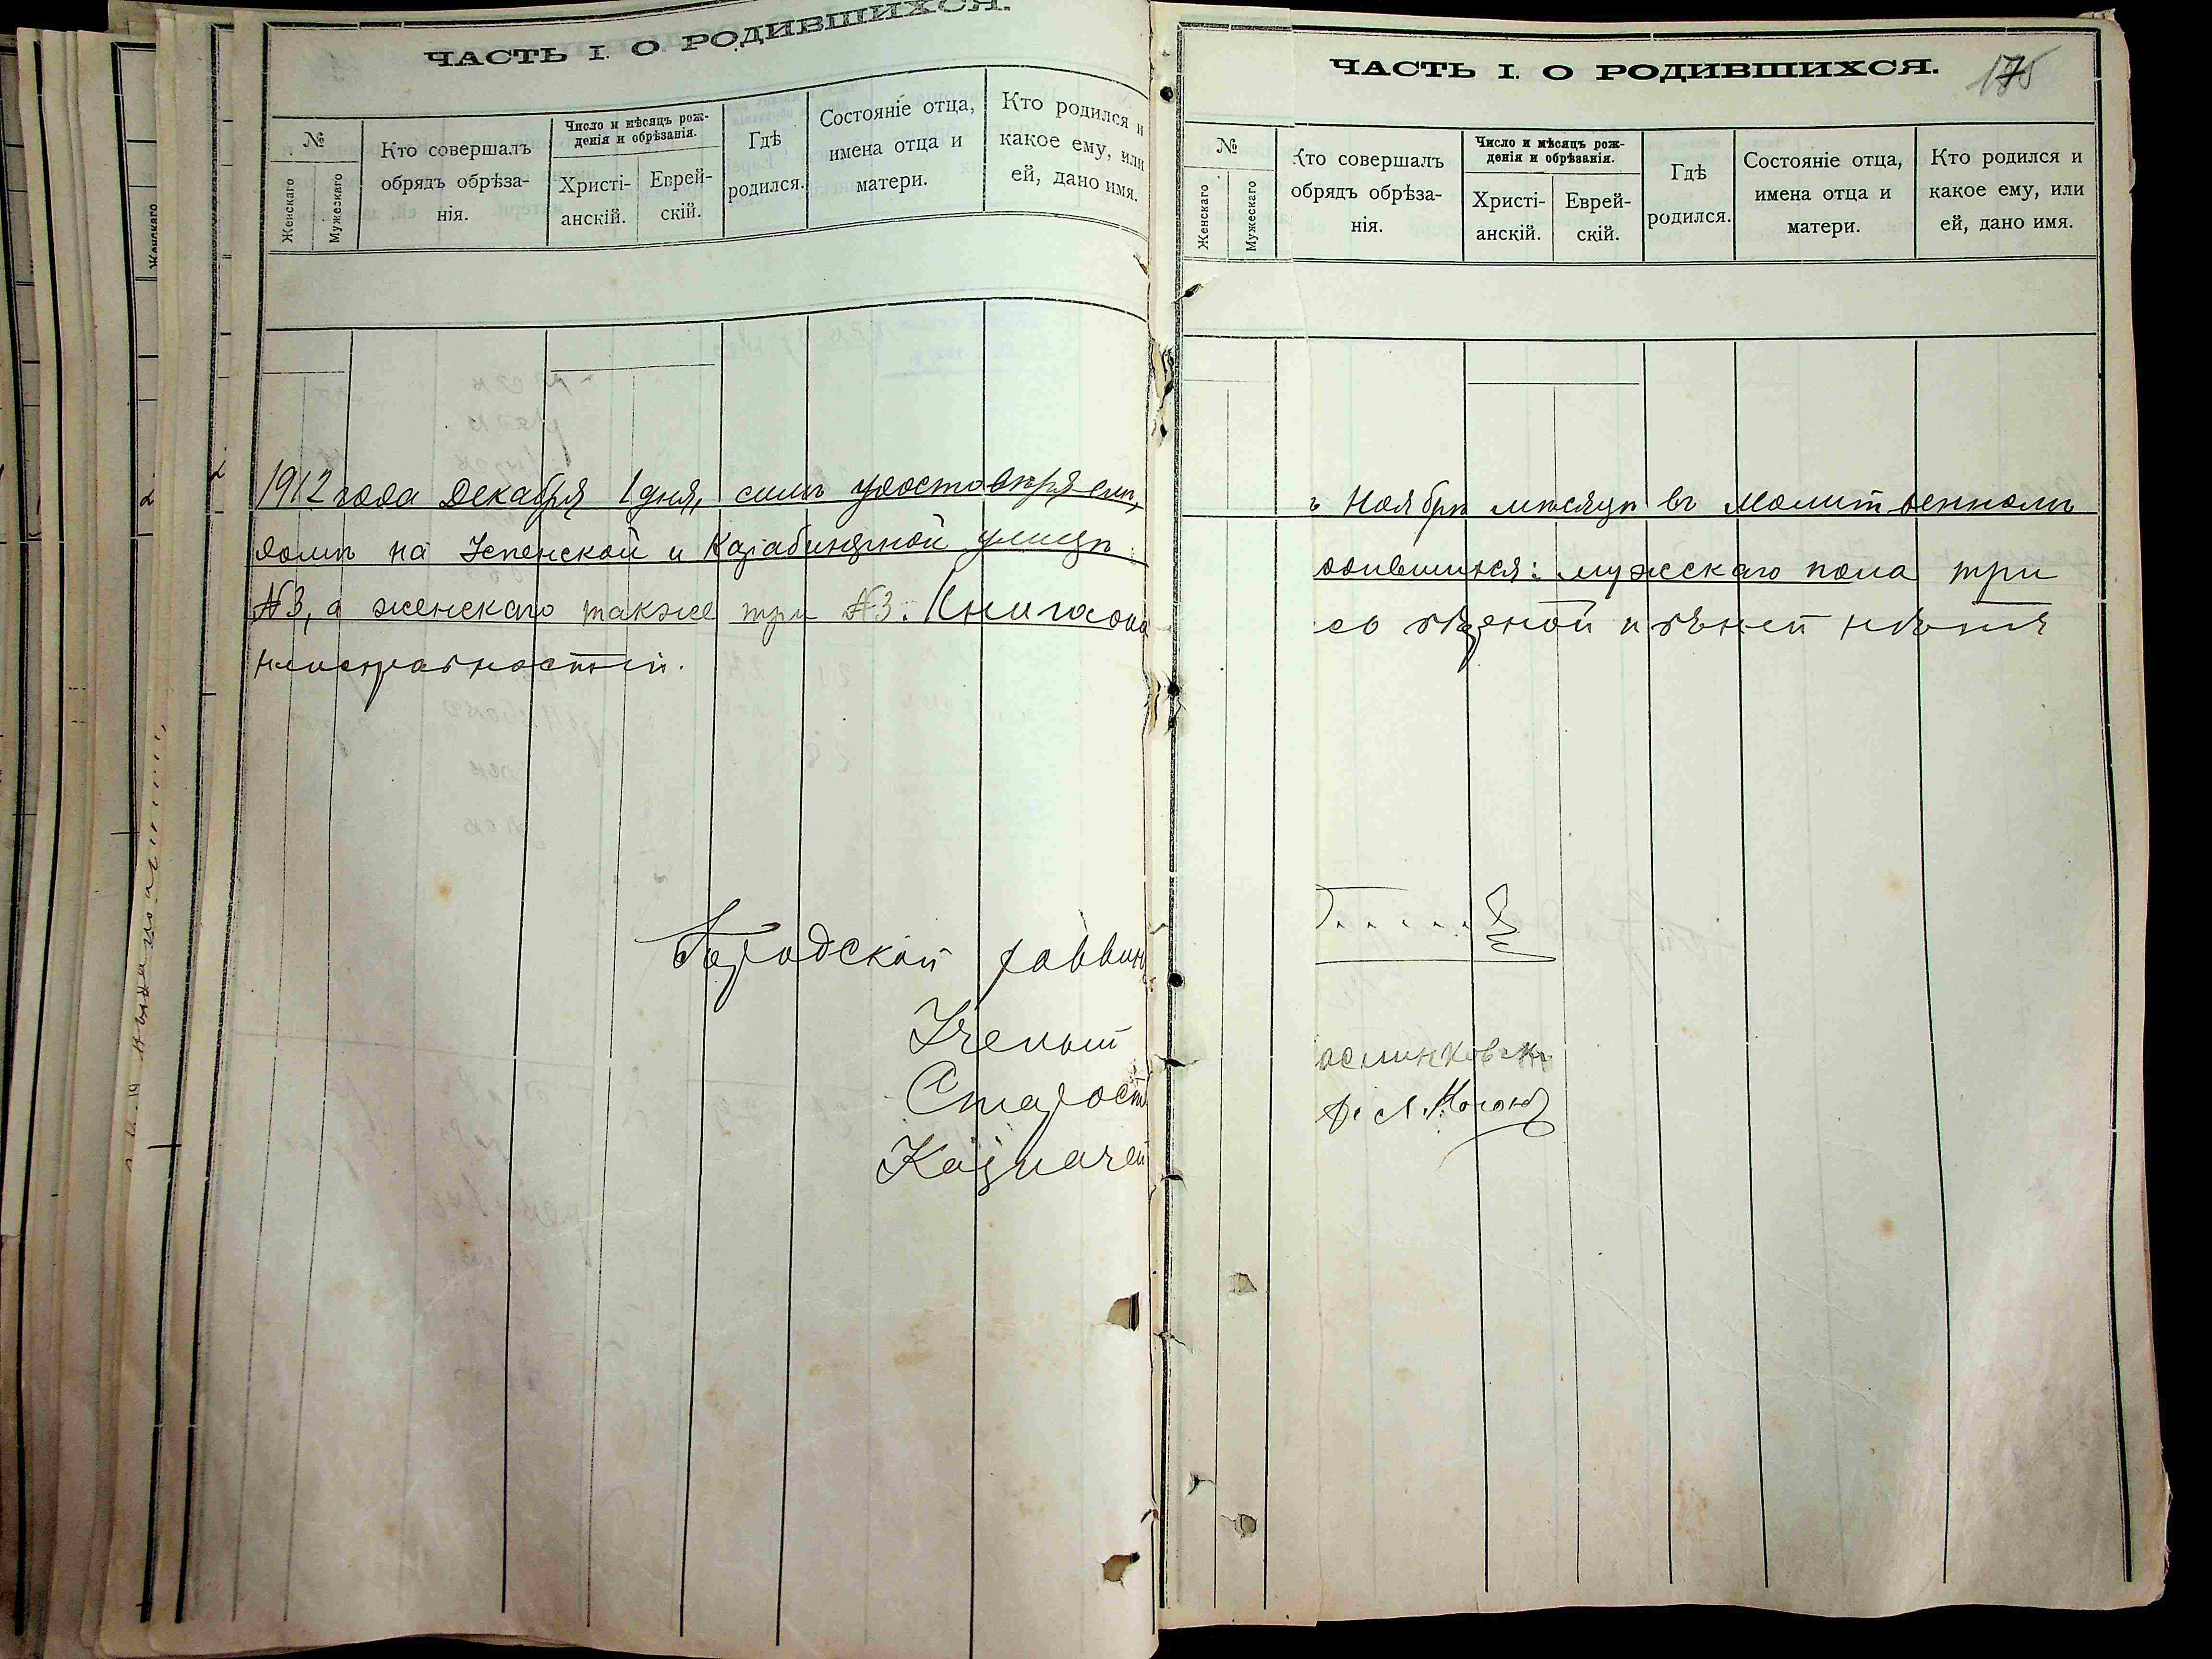 ЧАСТЬ I. О РОДИВШИХСЯ.
№
Женскаго
Мужескаго
Кто совершалъ
обрядъ обрѣза-
нія.
Число и мѣсяцъ рож-
денія и обрѣзанія.
Христі-
анскій.
Еврей-
скій.
Гдѣ
родился.
Состояніе отца,
имена отца и
матери.
Кто родился и
какое ему, или
ей, дано имя.
1912 года Декабря 1 дня, симъ удостовѣряемъ,
домѣ на Успенской и улицѣ
№3, а женскаго также три №3. Книга
неисправностей.
Городской раввинъ
Ученый
Старост
Казначей
Женскаго
ЧАСТЬ I. О РОДИВШИХСЯ.
175
№
Женскаго
Мужескаго
Кто совершалъ
обрядъ обрѣза-
нія.
Число и мѣсяцъ рож-
денія и обрѣзанія.
Христі-
анскій.
Еврей-
скій.
Гдѣ
родился.
Состояніе отца,
имена отца и
матери.
Кто родился и
какое ему, или
ей, дано имя.
ъ Ноябрѣ мѣсяцѣ въ Молитвенномъ
одившихся: мужескаго пола три
нѣтъ